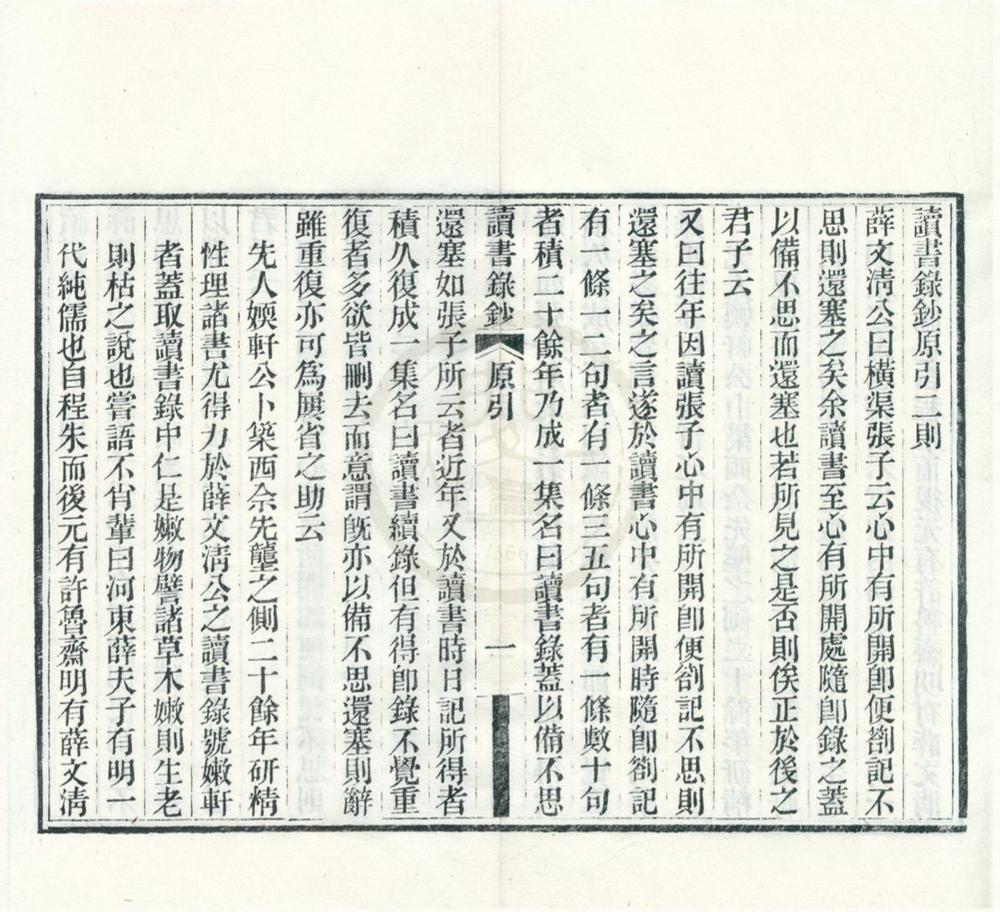 讀書錄鈔原引二則
薛文淸公曰橫渠張子云心中有所開卽便劄記不
思則還塞之矣余讀書至心有所開處隨卽錄之蓋
以備不思而還塞也若所見之是否則俟正於後之
君子云
又曰往年因讀張子心中有所開卽便劄記不思則
還塞之矣之言遂於讀書心中有所開時隨卽劄記
有一條一二句者有一條三五句者有一條數十句
者積二十餘年乃成一集名曰讀書錄蓋以備不思
讀書錄鈔 原引 一
還塞如張子所云者近年又於讀書時日記所得者
積久復成一集名曰讀書續錄但有得卽錄不覺重
復者多欲皆刪去而意謂旣亦以備不思還塞則辭
雖重復亦可為屢省之助云
先人媆軒公卜築西佘先壟之側二十餘年研精
性理諸書尤得力於薛文淸公之讀書錄號嫩軒
者蓋取讀書錄中仁是嫩物譬諸草木嫩則生老
則枯之說也嘗語不肖輩曰河東薛夫子有明一
代純儒也自程朱而後元有許魯齋明有薛文淸